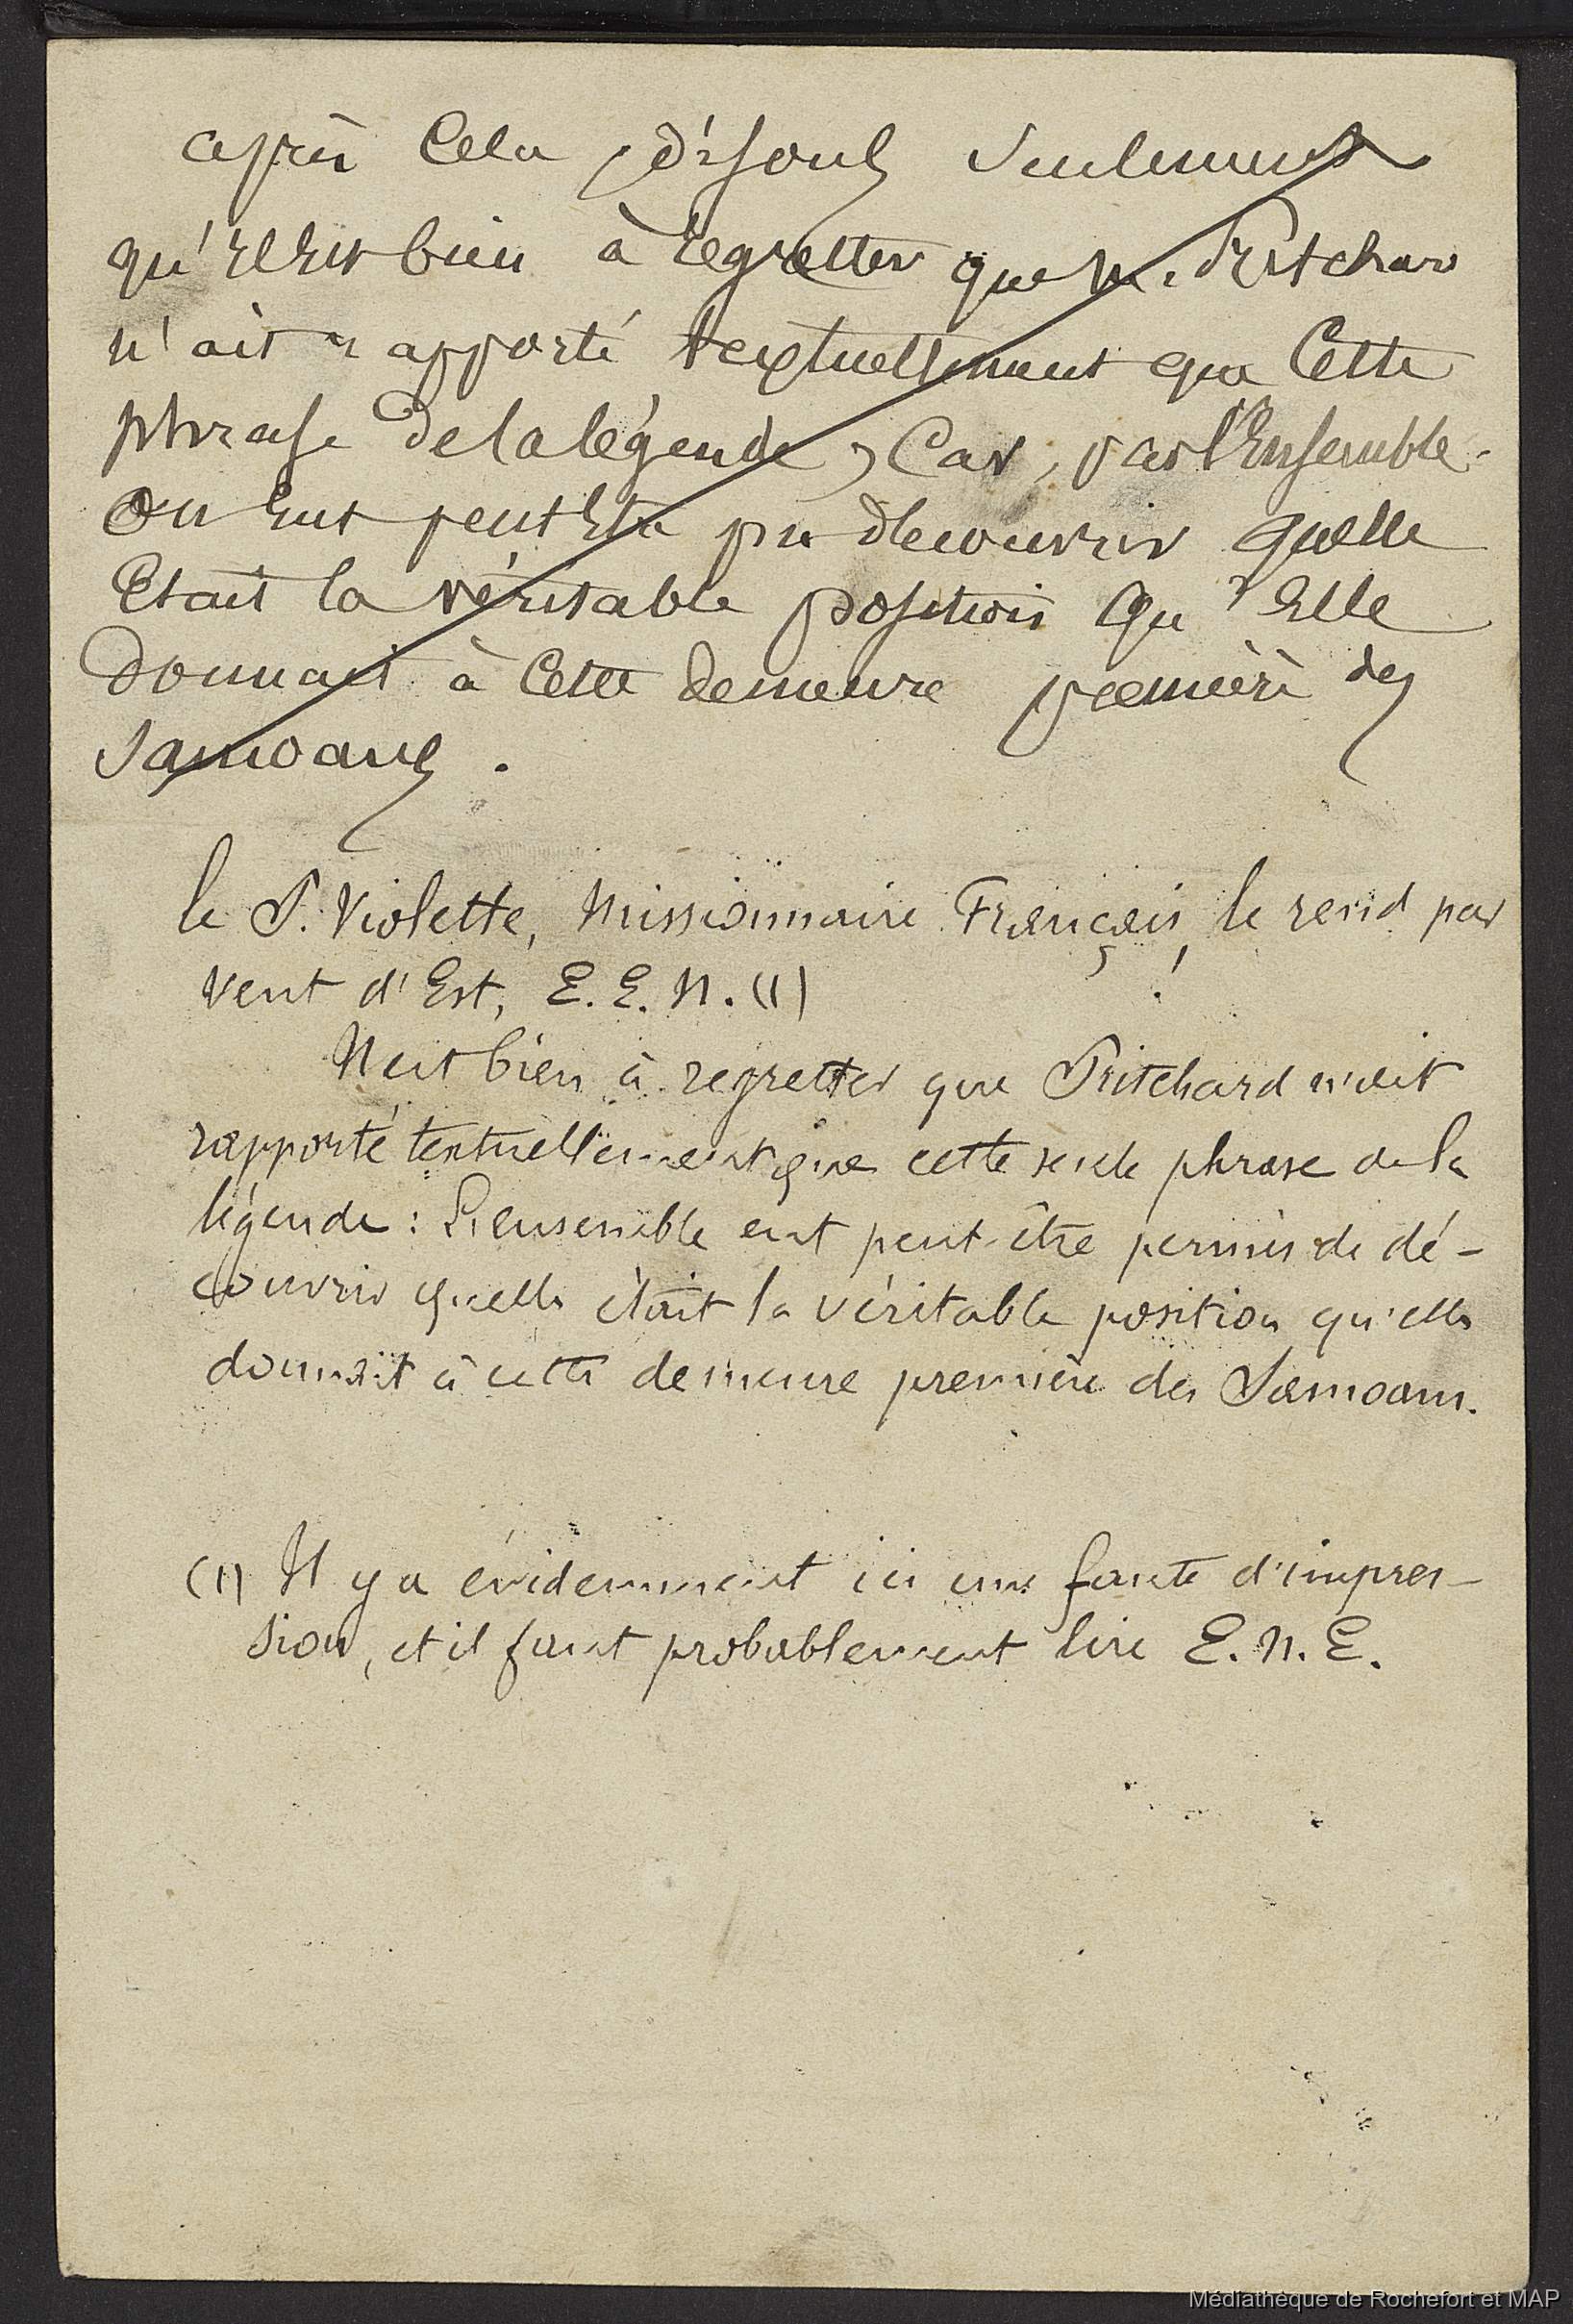 après Cela , disons Seulement
qu'il est bien à regretter que M. Pritchar
n'ait rapporté textuellement que Cette
phrase de la légende, Car, par l'Ensemble
On eut peut être pu découvrir quelle
Etait la véritable position qu'Elle
donnait à Cette demeure première des
Samoans.
le P. Violette, Missionnaire Français, le rend par
vent d'Est, E. E. N. (1)
Il est bien à regretter que Pritchard n'ait
rapporté textuellement que cette seule phrase de la
légende : L'ensemble eut peut-être permis de dé-
couvrir quelle était la véritable position qu'elle
donnait à cette demeure première des Samoans.
(1) Il y a évidemment ici une faute d'impres-
sion, et il faut probablement lire E. N. E.
Médiathèque de Rochefort et MAP